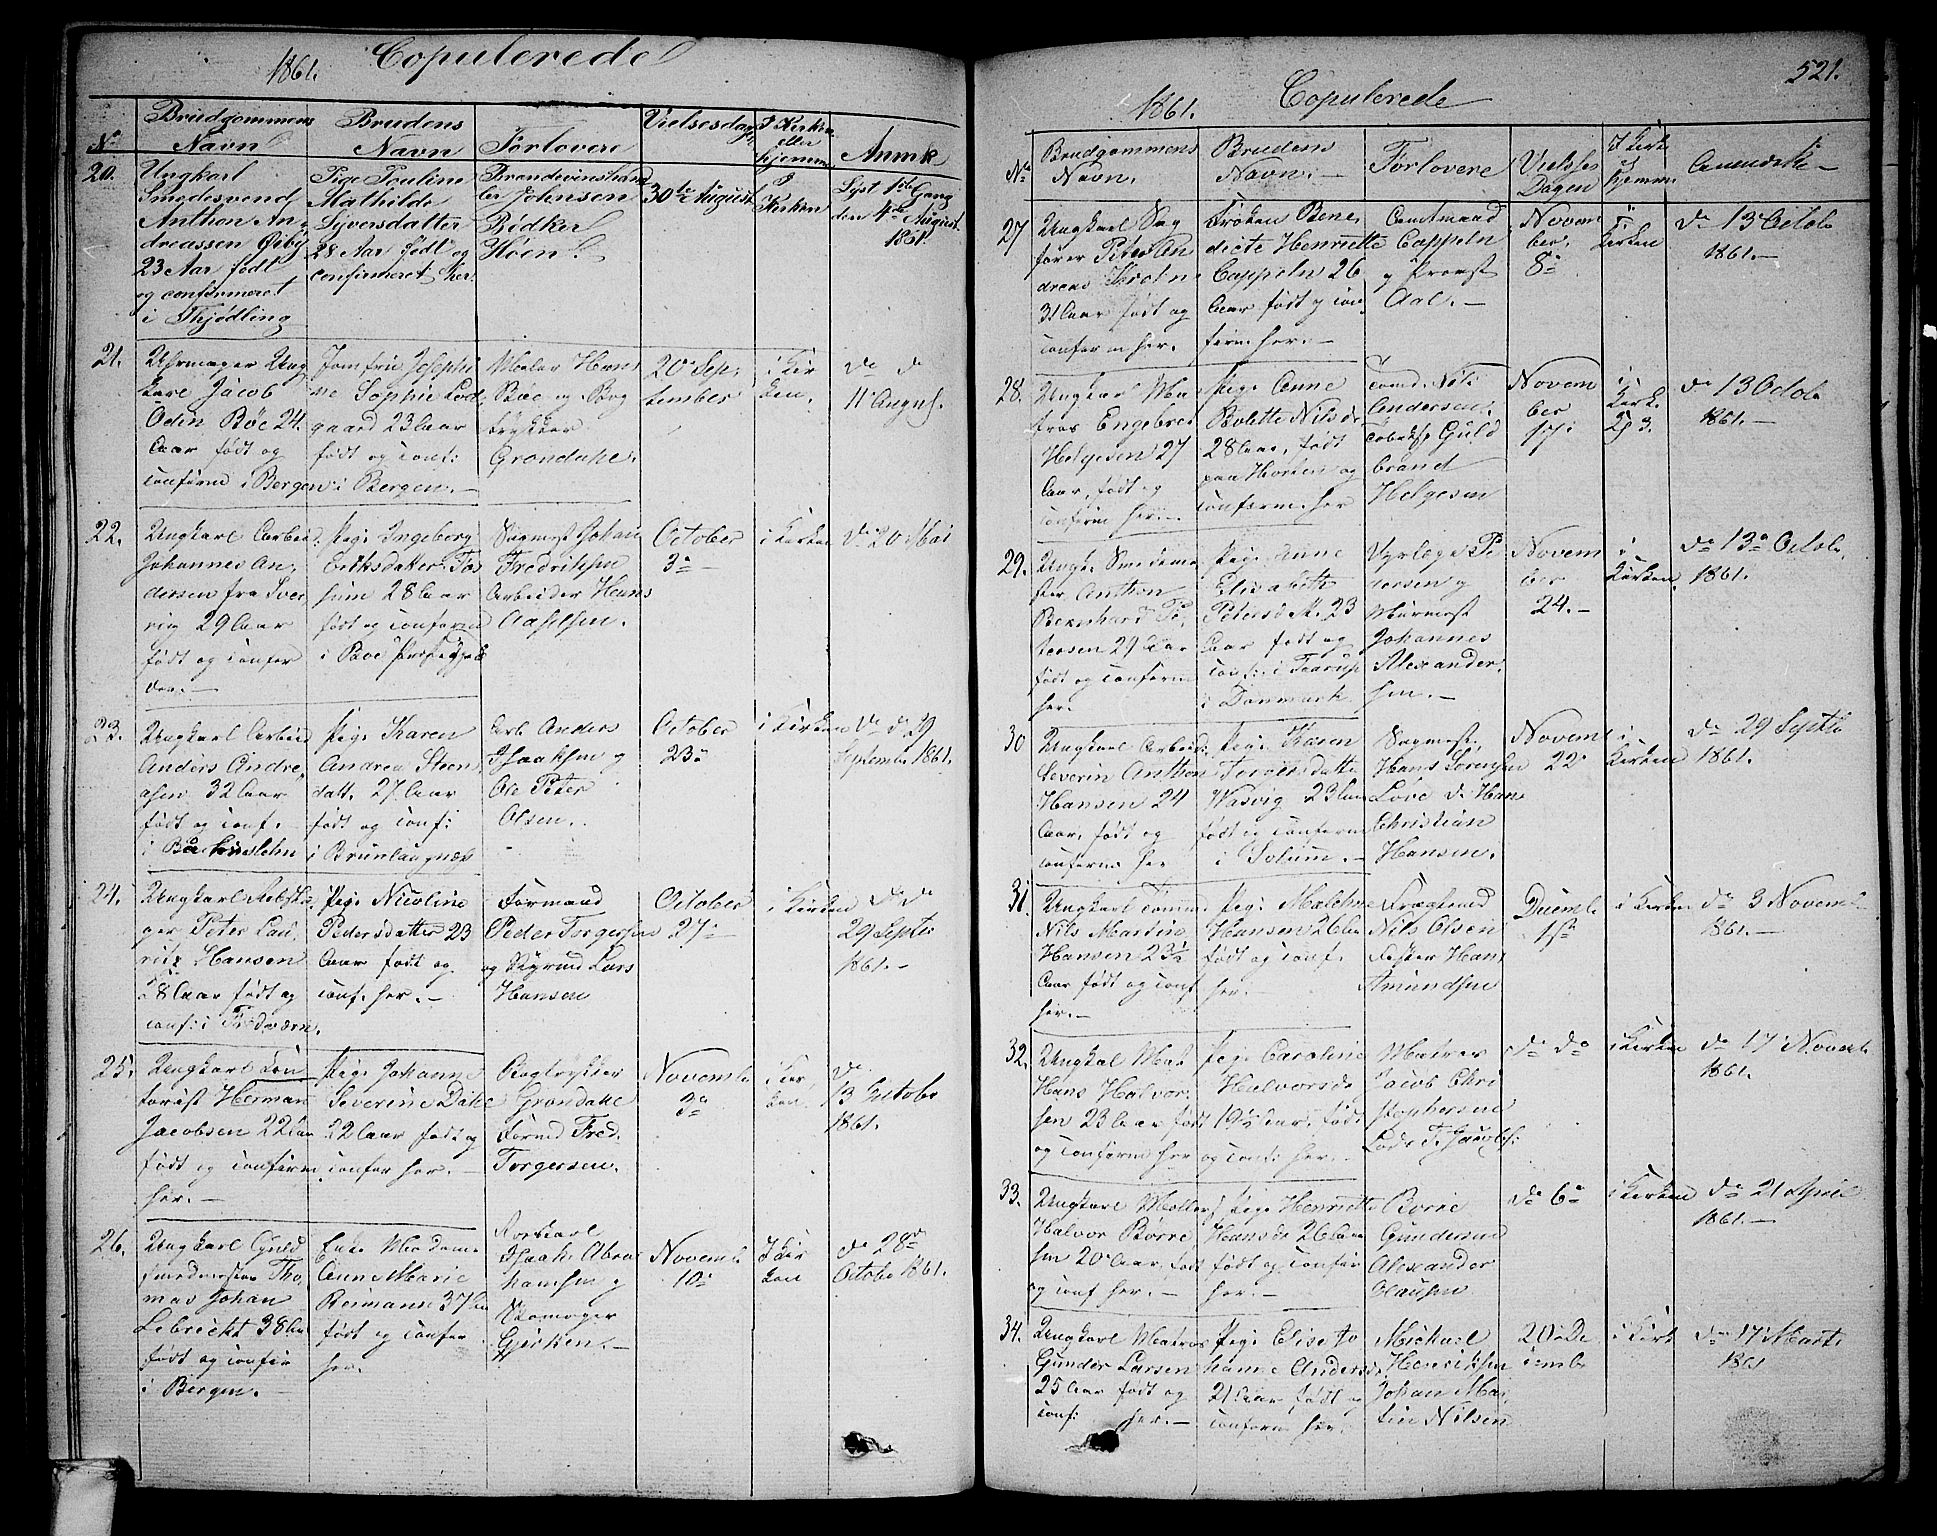 1861. Copulerede
No
Brudgommens
Navn
Brudens
Navn
Forlovere
Vielsesdag
I Kirken
eller
hjemme
Anmk
20.
Ungkarl
Smedesvend
Anthon An
dreassen Øiby
23 Aar født
og confirmeret
i Thjødling
Pige Pauline
Mathilde
Syversdatter
28 Aar født og
confirmeret her.
Brændevinshand
ler Johnsen
Bødker
Høen
30te August
I
Kirken
Lyst 1ste Gang
den 4de August
1861.
21.
Uhrmager Ung
karl Jacob
Odin Bøe 24
Aar født og
confirm i Bergen
Jomfru Josephi
ne Sophie Lod
gaard 23 Aar
født og conf:
i Bergen.
Maler Hans
Bøe og Bog
trykker
Grøndahl.
20 Sep
tember
i Kir
ken.
do do
11 August.
22.
Ungkarl Arbeid
Johannes An
dersen fra Sver
rig 29 Aar
født og confir
der.
Pige Ingeborg
Eriksdatter Fos
sum 28 Aar
født og confirm
i Boe
Sagmest Johan
Fredriksen
Arbeider Hans
Axelsen.
October
3
i Kirken
do 20 Mai
23.
Ungkarl Arbeid
Anders Andre
asen 32 Aar
født og conf.
i
Pige Karen
Andrea Steen
datt. 27 Aar
født og conf:
i Brunlaugnæs
Arb Anders
Isaaksen og
Ole Peter
Olsen.
October
23
i Kirken
do d 29
September 1861.
24.
Ungkarl
Peter Lau
ritz Hansen
28 Aar født og
conf: i Fredværn.
Pige Nicoline
Pedersdatter 23
Aar født og
conf. her.
Formand
Peder Torgersen
og Lars
Hansen
October
27
i Kirken
do do
29 Septbr
1861.
25.
Ungkarl Con
torist Herman
Jacobsen 22 Aar
født og confirm
her.
Pige Johanne
Severine Dahl
22 Aar født og
confir her.
Bogtrykker
Grøndahl
Formd Fred.
Torgersen.
Novemb
3
i Kir
ken
do
13 October
1861.
26.
Ungkarl Guld
smedmester Tho
mas Johan
Lebrecht 38 Aar
født og confir
i Bergen.
Enke Madame
Anne Marie
Reimanse 37 Aar
født og confir
her.
Isaak Abra
hamsen og
Skomager
Gjerken.
Novemb
10
I Kir
ken
do 28de
Octobe 1861.
521.
1861. Copulerede
No
Brudgommens
Navn.
Brudens
Navn.
Forlovere
Vielses
Dagen
I Kirk
Hjemm.
Anmærk
27
Ungkarl Sag
fører Peter An
dreas
31 Aar født og
confirm her.
Frøken Bene
dicte Henriette
Cappeln 26
Aar født og con
firm her.
Amtmand
Cappeln
og Provst
Aal.
Novem
ber
8
i
Kirken
do 13 Octob
1861.
28.
Ungkarl Ma
tros Engebret
Helgesen 27
Aar, født og
confirm her.
Pige Anne
Bolette Nilsd
28 Aar, født
paa Horten og
confirm. her
Nils
Andersen
Guld
brand
Helgesen
Novem
ber
17
i
Kirk.
do 13 Octob
1861.
29.
Ungk. Smedeme
ster Anthon
Bernhard Pe
tersen 29 Aar
født og confirm
her.
Pige Anne
Elisabeth
Petersd 23
Aar født og
conf: i
i Danmark
Pe
dersen og
Murmest
Johannes
Alexander
sen.
Novem
ber
24.
i
Kirken
do 13 Octob.
1861.
30
Ungkarl Arbeid
Severin Anthon
Hansen 24
Aar, født og
confirm her
Pige Karen
Torersdatte
Wasvig 23 Aar
født og confirm
i Solum.
Sagmest
Hans Sorensen
Love do Hans
Christian
Hansen.
Novemb
22
i
Kirken
do 29 Septb
1861.
31.
Ungkarl Tømm
Nils Martin
Hansen 23½
Aar født og conf
her.
Pige Malene
Hansen 26 Aar
født og conf.
her.
Fragtmd
Nils Olsen
Fisker Hans
Amundsen
Decemb
1ste
i Kirken
do 3 Novemb
1861.
32.
Ungkal Mat
Hans Halvor
sen 23 Aar født
og confirm her
Pige Caroline
Halvorsd
19½ Aar, født
og conf: her.
Matros
Jacob Chri
stophersen
Lods T. Jacobs:
do do
i Kirken
do 17 Novemb
1861.
33.
Ungkarl
Halvor Børre
sen 20 Aar, født
og conf her.
Pige Henriette
Hansd 26 Aar
født og confir
her.
Børre
Gundersen
Alexander
Clausen
do 6
i Kirken
do 21 April
1861.
34.
Ungkarl Matros
Gunder Larsen
25 Aar født og
conf: her.
Pige Elise Jo
hanne Andersd
21 Aar født og
confirm her.
Michael
Henriksen
Johan Mar
tin Nilsen
20 De
cemb
i Kirk
do 17 Marts
1861